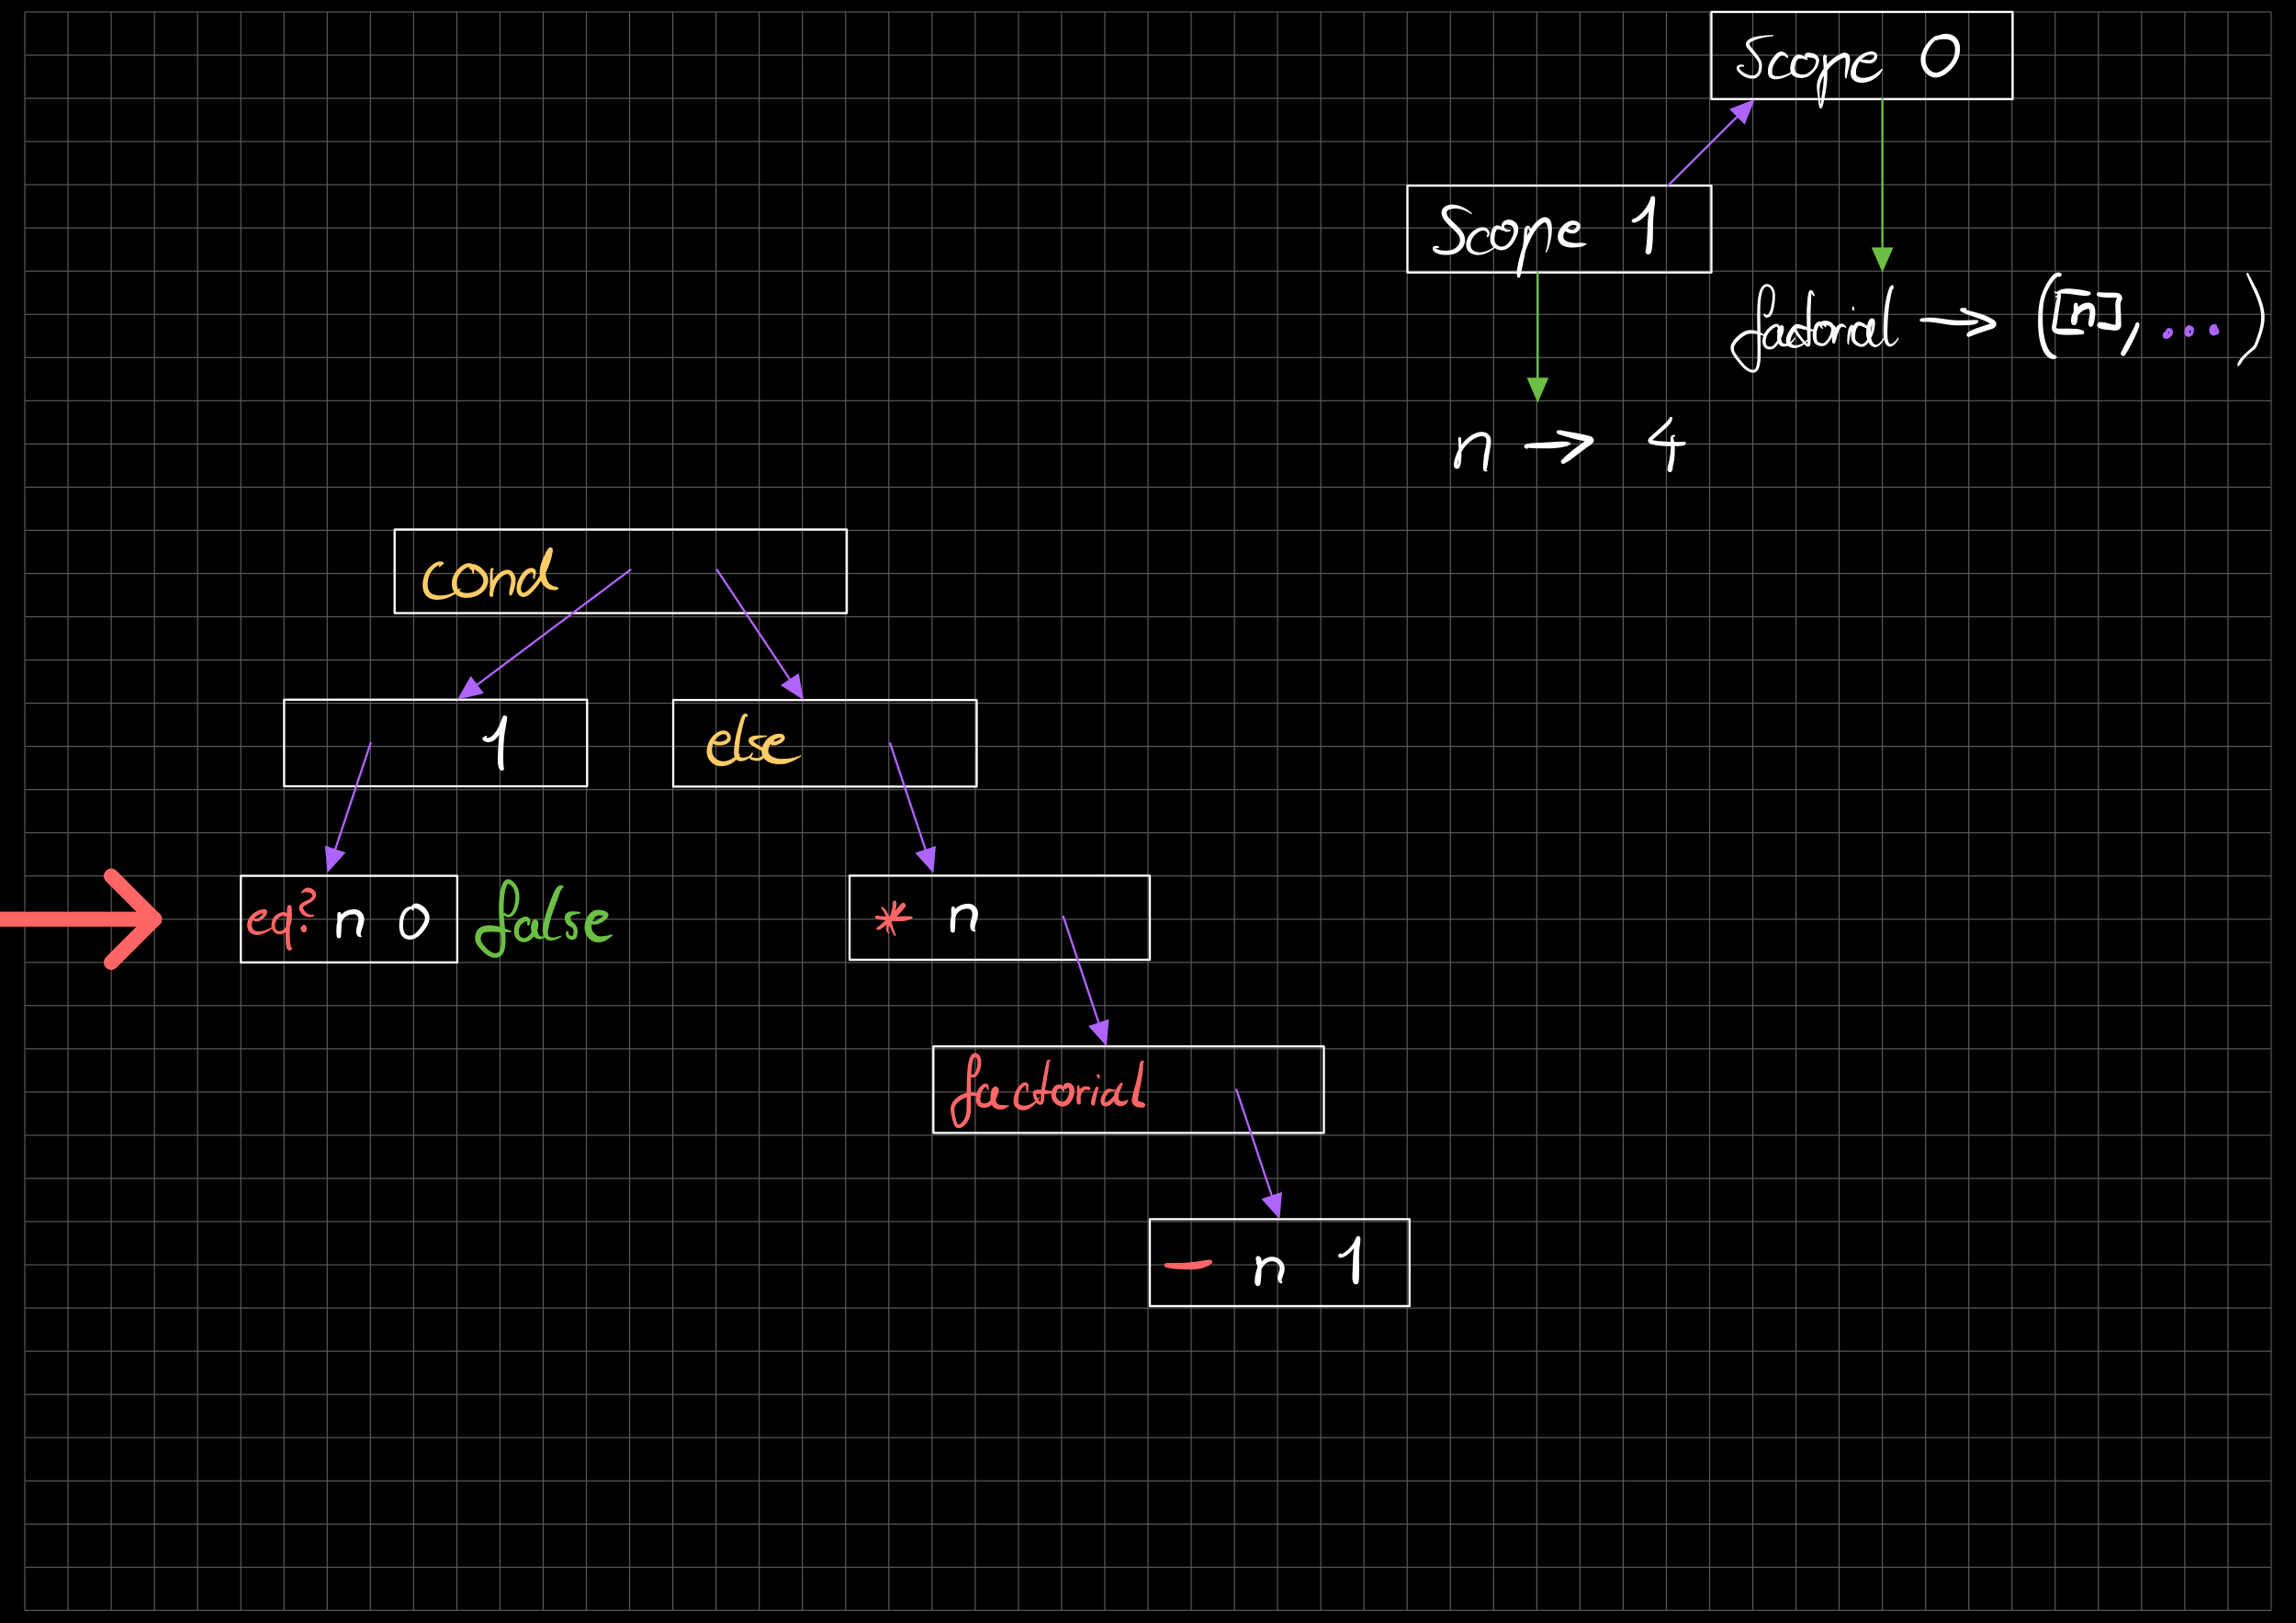 Scope 0
Scope 1
factorial → ([n], ...)
n → 4
cond
1
else
eq? n 0 false
* n
factorial
- n 1